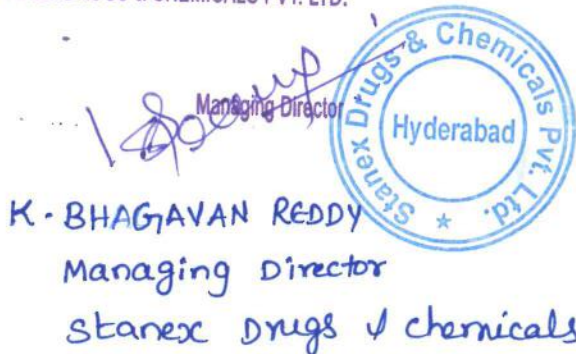 & CHEMICALS PVT. LTD.
Managing Director
Stanex Drugs & Chemicals Pvt. Ltd. *
Hyderabad
K. BHAGAVAN REDDY
Managing Director
Stanex Drugs & chemicals